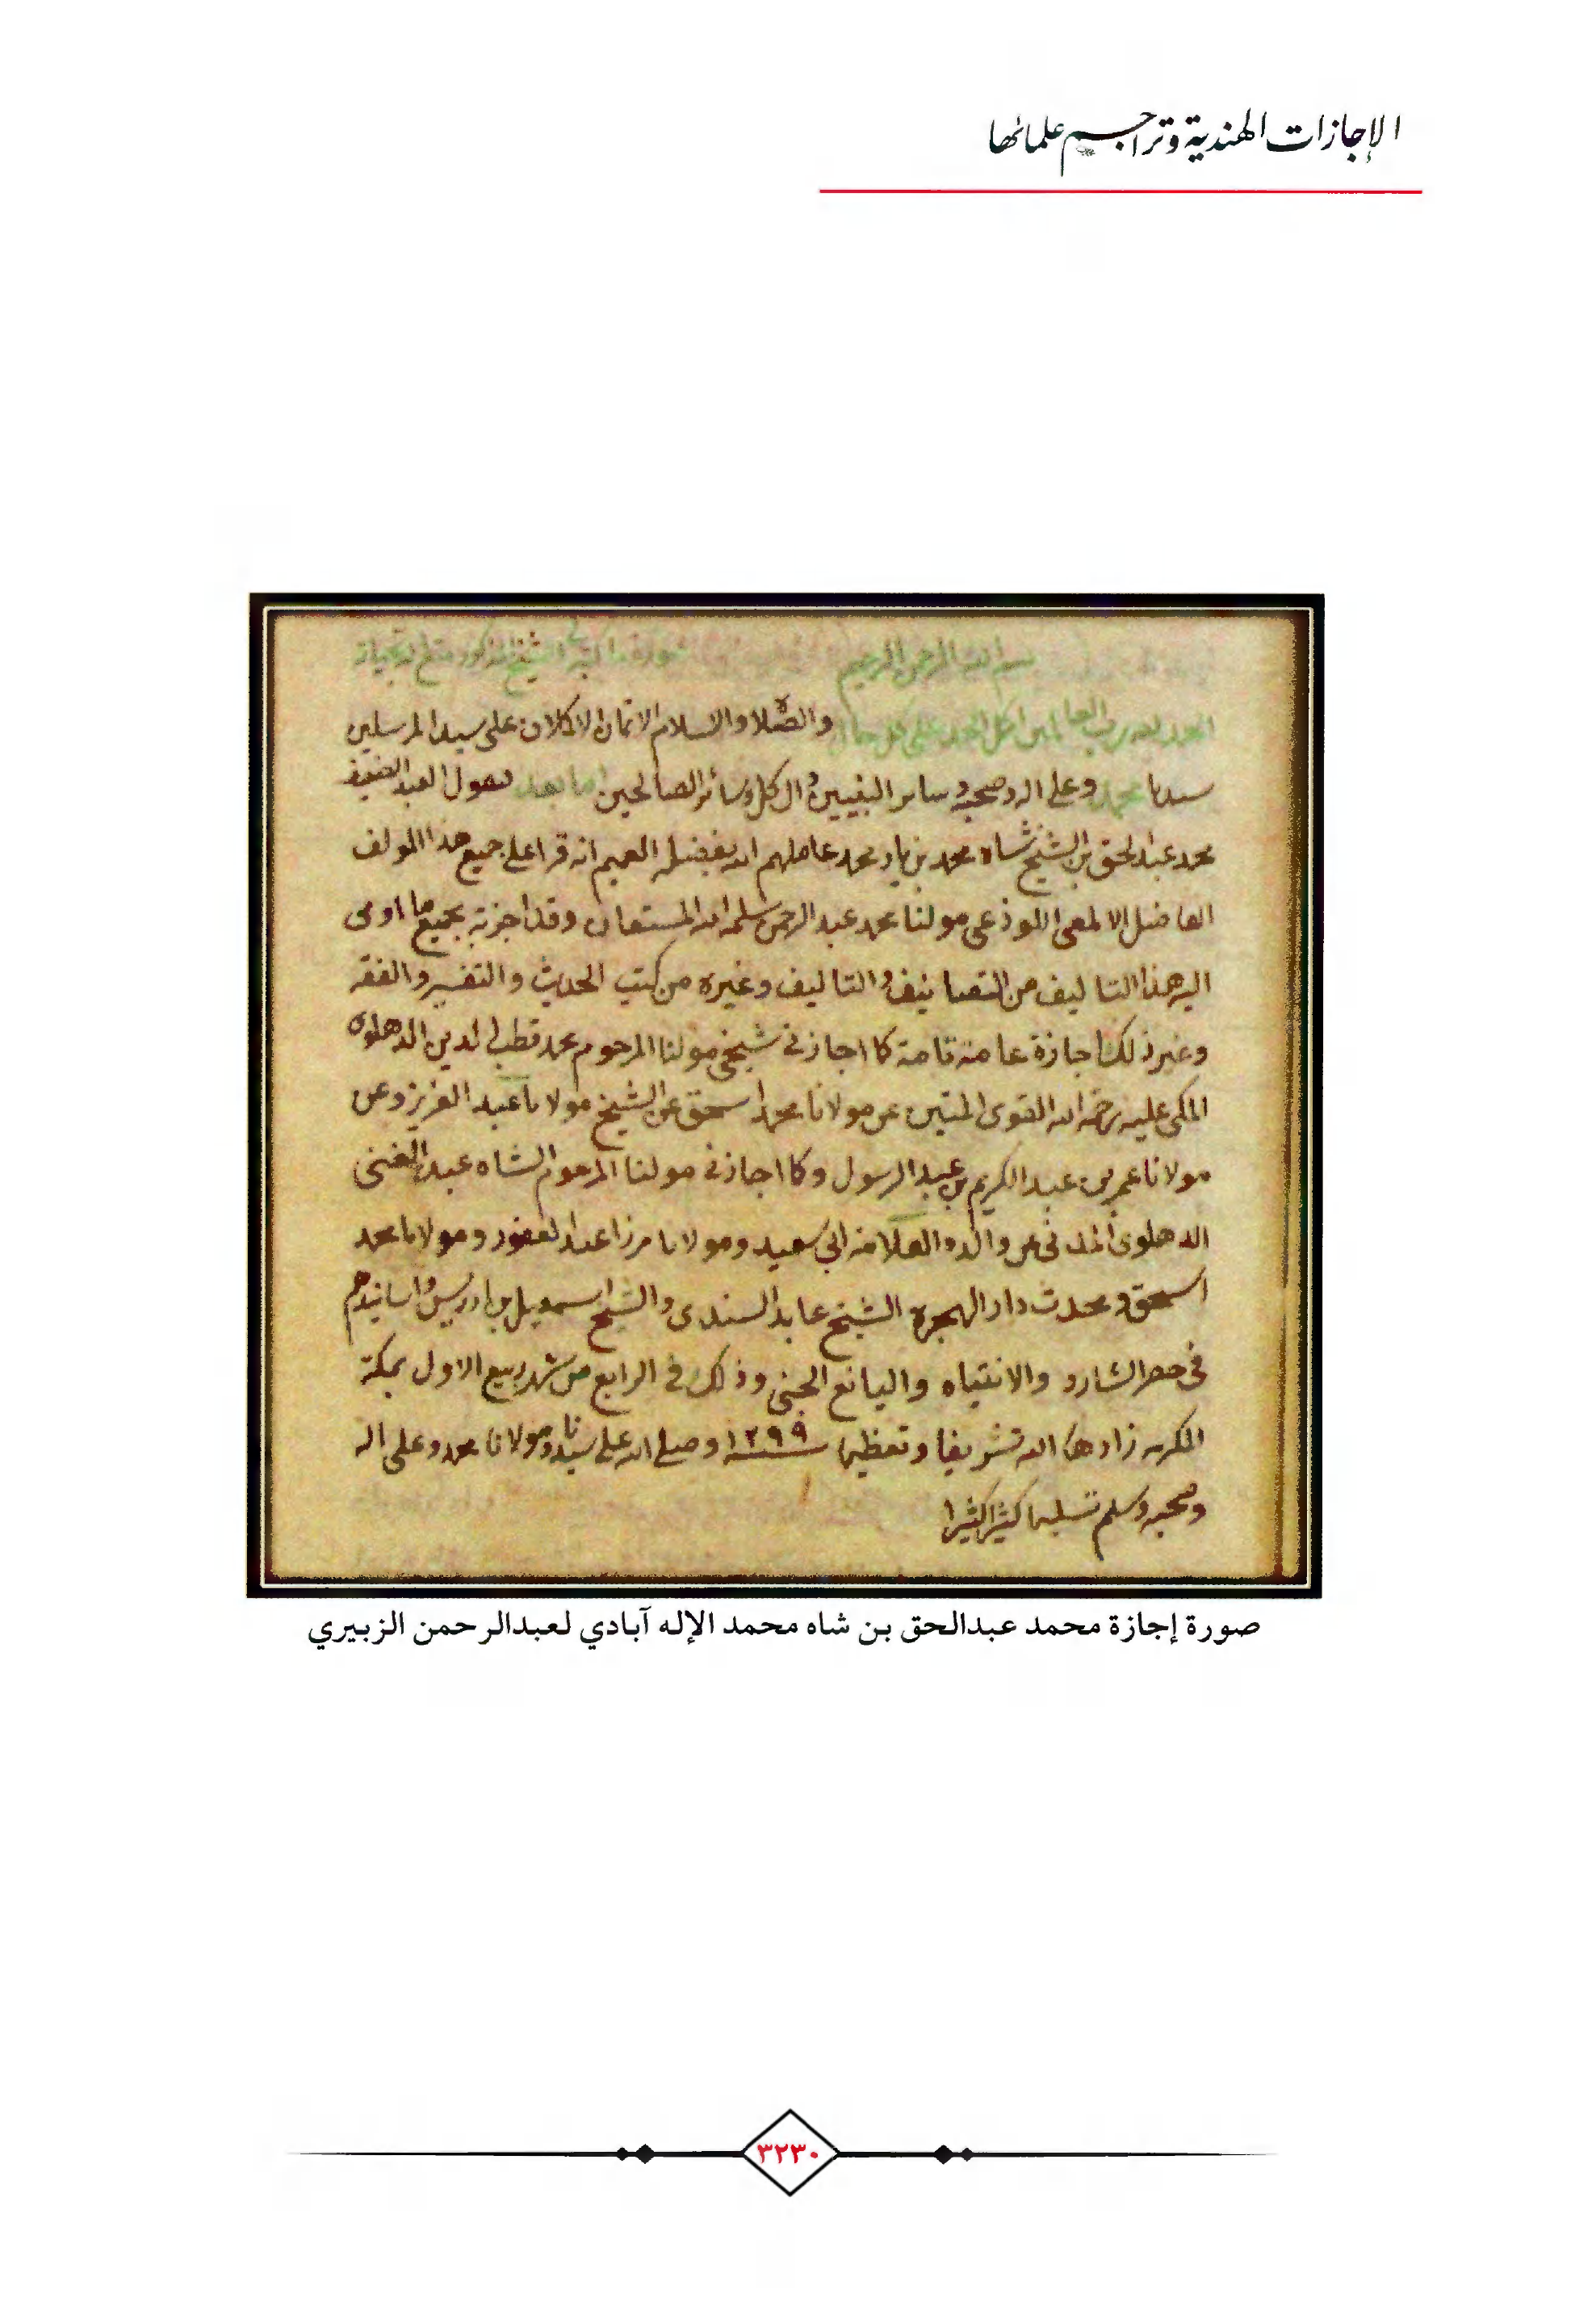 الإجازات الهندية وتراجم علمائها
بسم الله الرحمن الرحيم صورة ما كتبه الشيخ المذكور متع الله بحياته
الحمد لله رب العالمين اكمل الحمد على كل حال والصلاة والسلام الاتمان الاكملان على سيد المرسلين
سيدنا محمد وعلى اله وصحبه وسائر النبيين وال كل وسائر الصالحين اما بعد فيقول العبد الضعيف
محمد عبد الحق بن الشيخ شاه محمد بن يار محمد عاملهم الله بفضله العميم انه قرا على جميع هذا المولف
الفاضل الالمعي اللوذعي مولنا محمد عبد الرحمن سلمه الله المستعان وقد اجزته بجميع ما اومى
اليه هذا التاليف من التصانيف والتاليف وغيره من كتب الحديث والتفسير والفقه
وغير ذلك اجازة عامة تامة كما اجازني شيخي مولنا المرحوم محمد قطب الدين الدهلوى
المكي عليه رحمة الله القوى المتين عن مولانا محمد اسحق عن الشيخ مولانا عبد العزيز وعن
مولانا عمر بن عبد الكريم بن عبد الرسول وكما اجازني مولنا المرحوم الشاه عبد الغني
الدهلوى المدني عن والده العلامة ابي سعيد ومولانا مرزا عبد الغفور ومولانا محمد
اسحق ومحدث دار الهجرة الشيخ عابد السندى والشيخ اسمعيل بن ادريس واسانيدهم
في حصر الشارد والانتباه واليانع الجني وذلك في الرابع من شهر ربيع الاول بمكة
المكرمه زادها الله تشريفا وتعظيما سنة ١٢٩٩ وصلى الله على سيدنا ومولانا محمد وعلى اله
وصحبه وسلم تسليما كثيرا كثيرا
صورة إجازة محمد عبدالحق بن شاه محمد الإله آبادي لعبدالرحمن الزبيري
٣٢٣٠